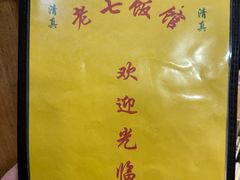 清真
老七饭馆
清真
欢迎光临